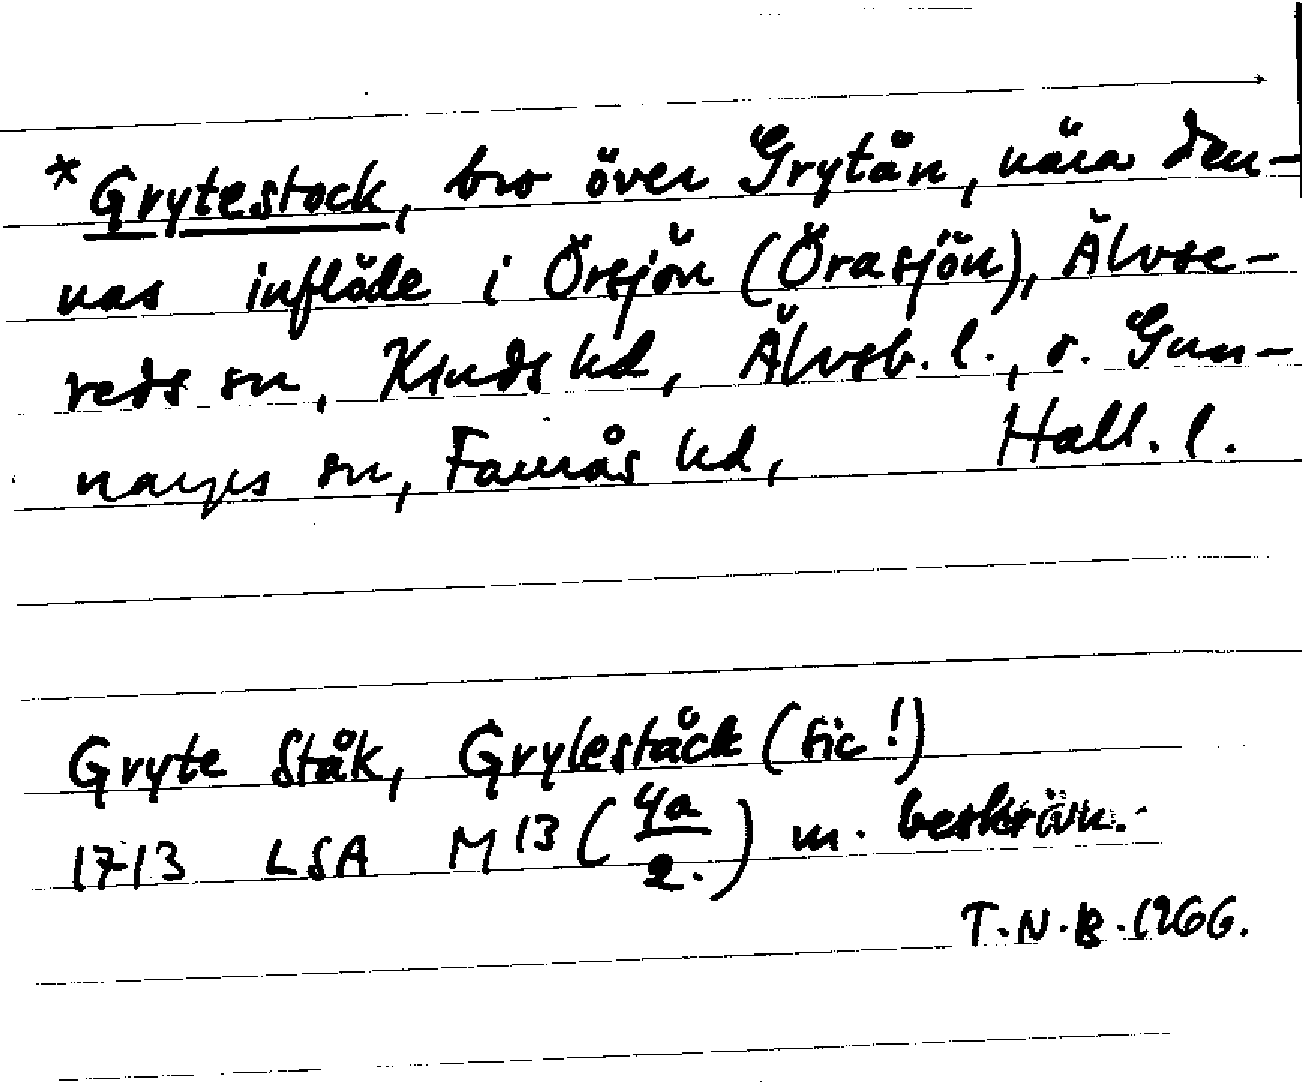 *Grytestock, bro över Grytån, nära den-
nas inflöde i Örsjön (Örasjön), Älvse-
reds sn, Kinds hd, Älvsb. l., o. Gun-
narps sn, Faurås hd, Hall. l.
Gryte Ståk, Gryleståck (sic!)
1713 LSA M 13 (4a/2.) m. beskrivn.
T.N.B. 1966.